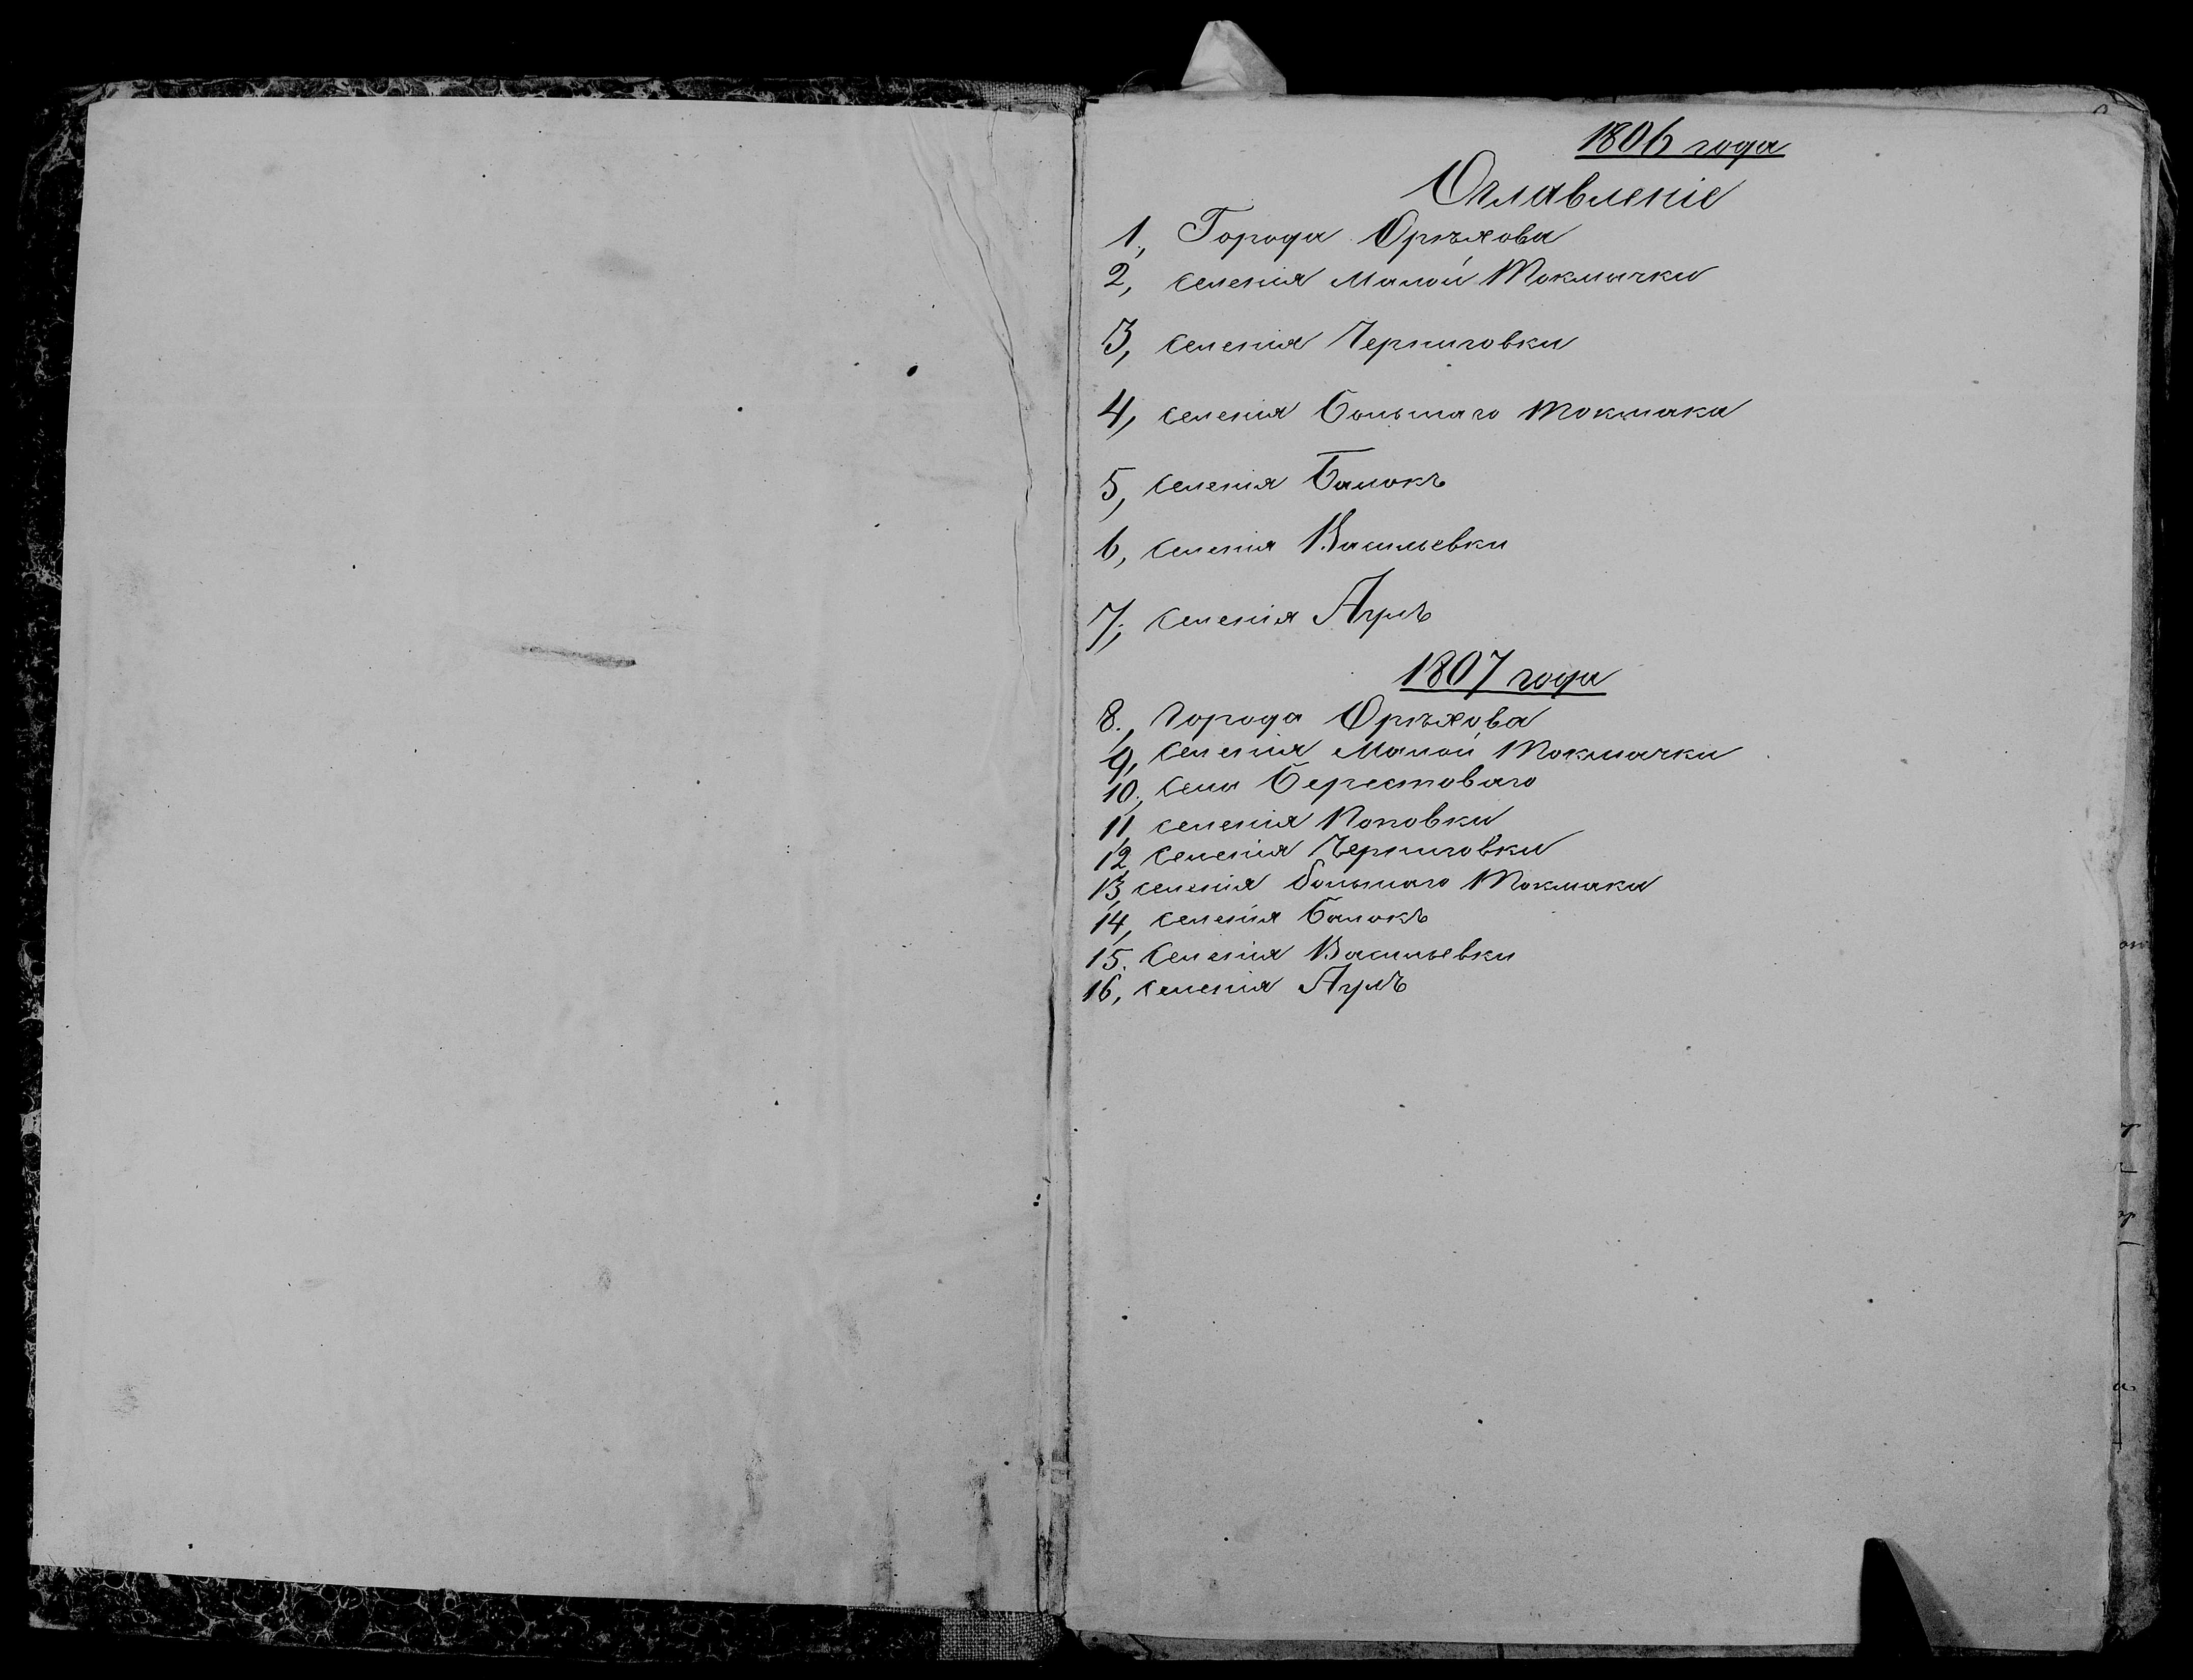 1806 года
Оглавленіе
1., Города Орѣхова
2, селенія Малой Токмачки
3, селенія Черниговки
4, селенія Большаго Токмака
5, селенія Балокъ
6, селенія Васильевки
7; селенія Аулъ
1807 года
8., Города Орѣхова
9, селенія Малой Токмачки
10., села Берестоваго
11, селенія Поповки
12, селенія Черниговки
13, селенія Большаго Токмака
14, селенія Балокъ
15. селенія Васильевки
16, селенія Аулъ